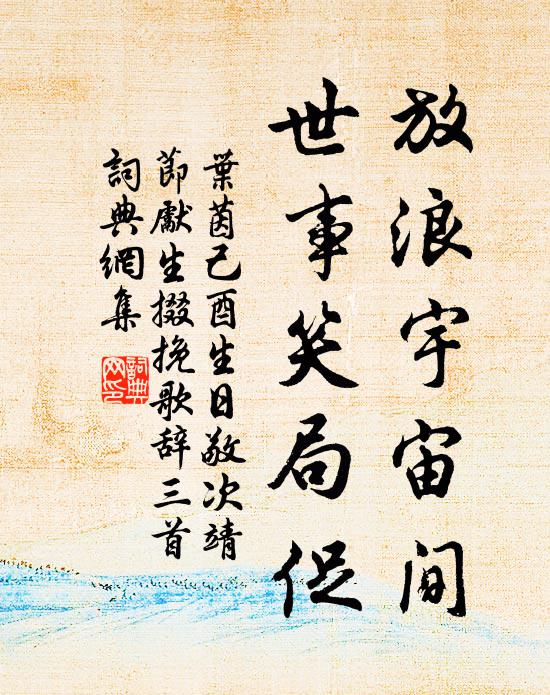 放浪宇宙间
世事笑局促
葉茵己酉生日敬次靖
節獻生掇挽歌辞三首
詞典網集
詞典网印